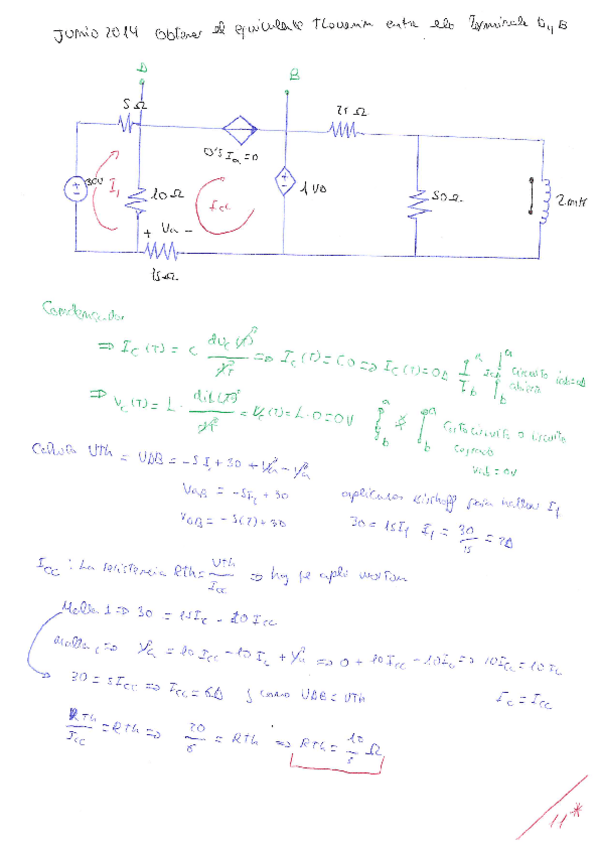 Junio 2014 Obtener el equivalente Thevenin entre los Terminales D y B
D
B
5Ω
25Ω
0'5 Ia=0
30V
I1
10Ω
Icc
1 Va
50Ω
2mH
+ Va -
15Ω
Condensador
⇒ Ic(T) = C dVc(T)/dT ⇒ Ic(T) = C·0 ⇒ Ic(T) = 0A
a
b
circuito
abierto
⇒ VL(T) = L · diL(T)/dT = VL(T) = L·0 = 0V
a
b
Cortocircuito o circuito
cerrado
Vab = 0V
Calculo VTh = VAB = -5I1 + 30 + Va - Va
VAB = -5I1 + 30
aplicamos Kirchoff para hallar I1
VAB = -5(2) + 30
30 = 15I1 I1 = 30/15 = 2A
Icc : La resistencia RTh = VTh/Icc ⇒
Malla 1 ⇒ 30 = 15Ic - 10Icc
Malla c ⇒ Va = 10Icc - 10Ic + Va ⇒ 0 + 10Icc - 10Ic ⇒ 10Icc = 10Ic
⇒ 30 = 5Icc ⇒ Icc = 6A y como VAB = VTh
Ic = Icc
RTh/Icc = RTh ⇒ 20/6 = RTh ⇒ RTh = 10/3 Ω
11*